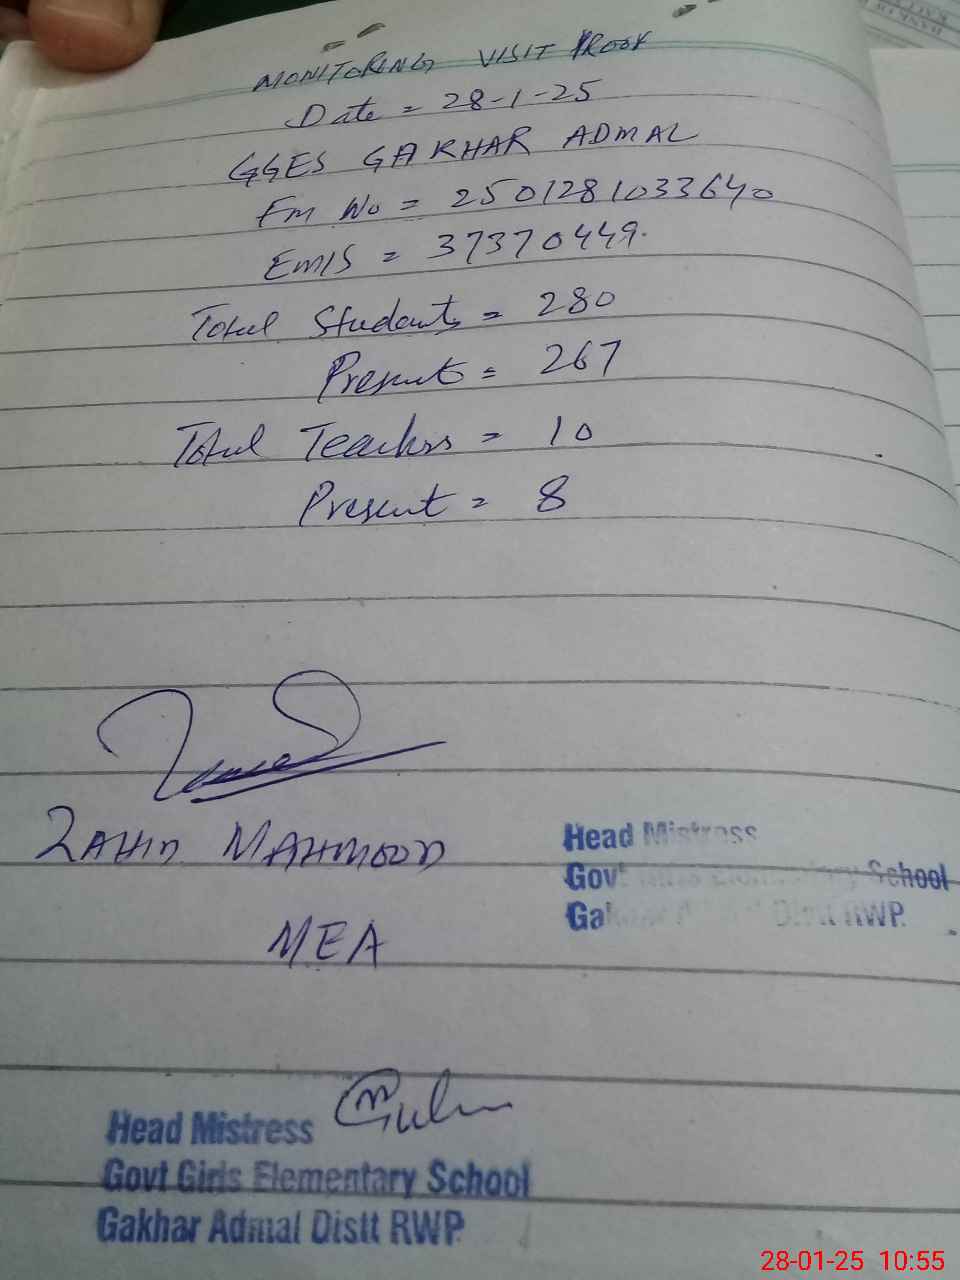 MONITORING VISIT PROOF
Date = 28-1-25
GGES GAKHAR ADMAL
Fm No = 2501281033640
EMIS = 37370449.
Total Students = 280
Present = 267
Total Teachers = 10
Present = 8
ZAHID MAHMOOD
MEA
Head Mistress
Govt Girls Elementary School
Gakhar Admal Distt RWP.
Head Mistress
Govt Girls Elementary School
Gakhar Admal Distt RWP.
28-01-25 10:55